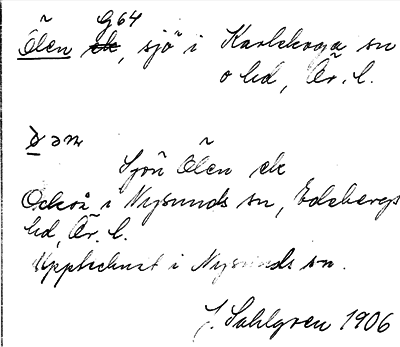 G64
Ölen ek, sjö i Karlskoga sn
o hd, Ör. l.
Sjön Ölen ek
Också i Nysunds sn, Edsbergs
hd, Ör. l.
Upptecknat i Nysunds sn.
J. Sahlgren 1906